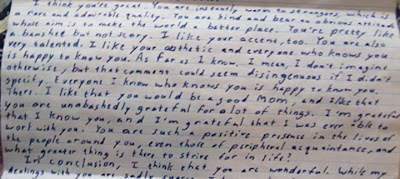 I think you're great. You are instantly warm to everyone, which is
a rare and admirable quality. You are kind and bear an obvious
whose roots make the world a better place. You're pretty like
a banshee but not scary. I like your accent, too. You are also
very talented. I like your aesthetic and everyone who knows you
is happy to know you. As far as I know, I mean, I don't imagine
otherwise, but that comment could seem disingenuous if I didn't
specify. Everyone I know who knows you is happy to know you.
There. I like that you would be a good Mom, and I like that
you are unabashedly grateful for a lot of things. I'm grateful
that I know you, and I'm grateful that I was ever able to
work with you. You are such a positive presence in the lives of
the people around you, even those of peripheral acquaintance, and
what greater thing is there to strive for in life?
In conclusion, I think that you are wonderful. While my
dealings with you are sadly